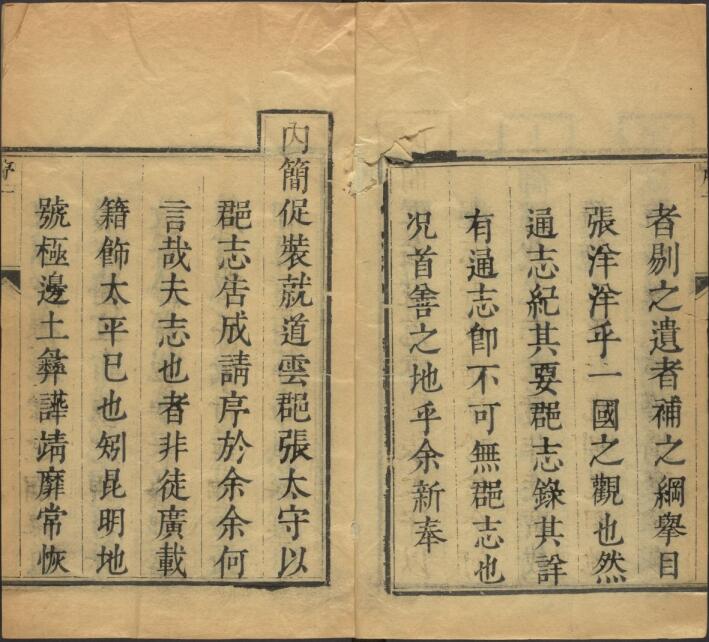 者剔之遺者補之綱舉目
張洋洋乎一國之觀也然
通志紀其要郡志錄其詳
有通志卽不可無郡志也
况首善之地乎余新奉
內簡促裝就道雲郡張太守以
郡志告成請序於余余何
言哉夫志也者非徒廣載
籍飾太平已也矧昆明地
號極邊土彝譁靖靡常恢
序一